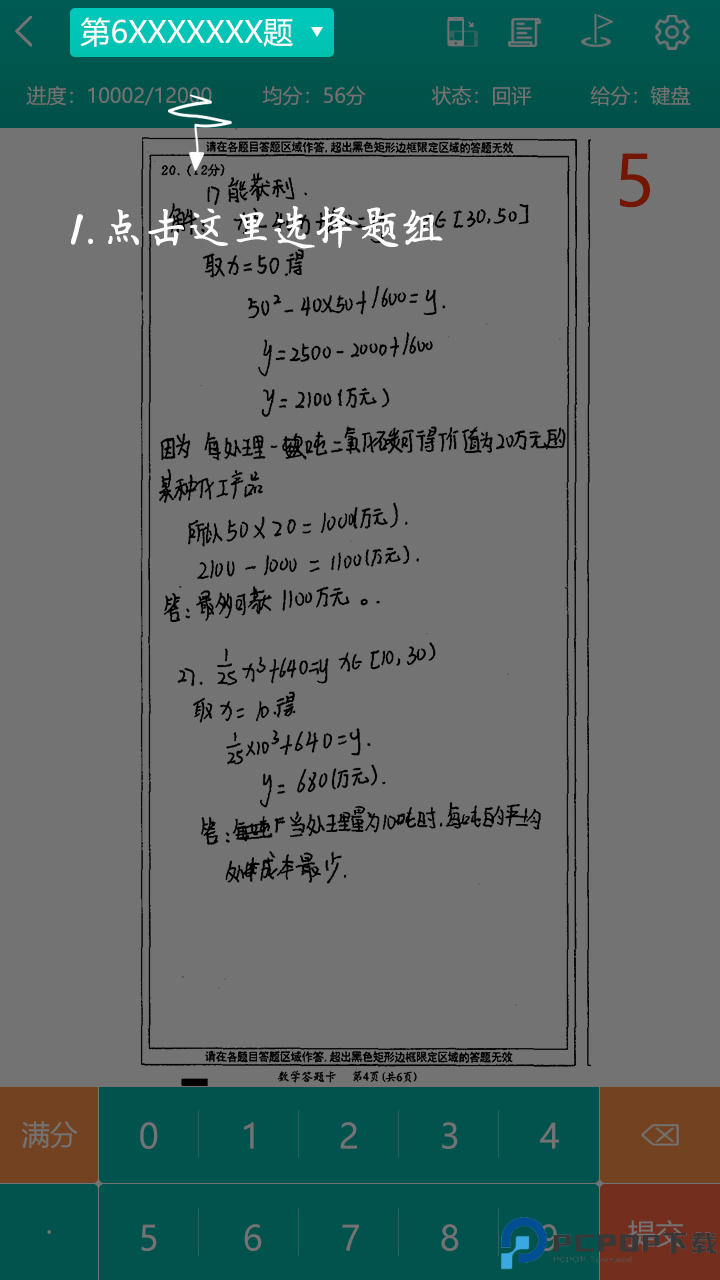 第6XXXXXXX题
进度：10002/12000 均分：56分 状态：回评 给分：键盘
请在各题目答题区域作答,超出黑色矩形边框限定区域的答题无效
5
20.(12分)
能获利.
1.点击这里选择题组
∈[30,50]
取x=50得
50²-40×50+1600=y.
y=2500-2000+1600
y=2100(万元)
因为 每处理一吨二氧化碳可得价值为20万元的
某种化工产品
所以50×20=1000(万元).
2100-1000=1100(万元).
答:最多可获1100万元。.
27. 1/25 x³+640=y x∈[10,30)
取x=10.得
1/25×10³+640=y.
y=680(万元).
答:当处理量为10吨时,每吨的平均
处理成本最少.
请在各题目答题区域作答,超出黑色矩形边框限定区域的答题无效
数学答题卡 第4页(共6页)
满分 0 1 2 3 4
. 5 6 7 8 9 提交
PCPOP下载